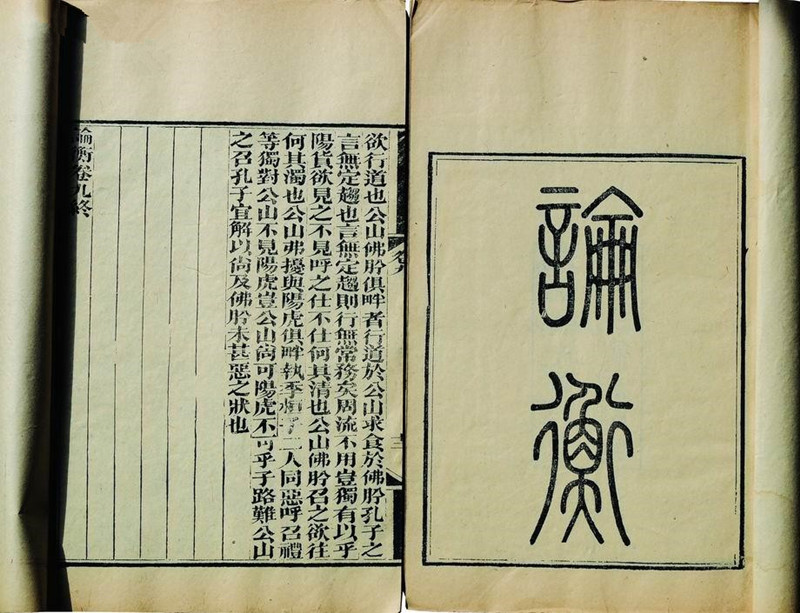 論衡
欲行道也公山佛肸俱畔者行道於公山求食於佛肸孔子之
言無定趨也言無定趨則行無常務矣周流不用豈獨有以乎
陽貨欲見之不見呼之仕不仕何其清也公山佛肸召之欲往
何其濁也公山弗擾與陽虎俱畔執季桓子二人同惡呼召禮
等獨對公山不見陽虎豈公山尚可陽虎不可乎子路難公山
之召孔子宜解以尚及佛肸未甚惡之狀也
論衡卷九終